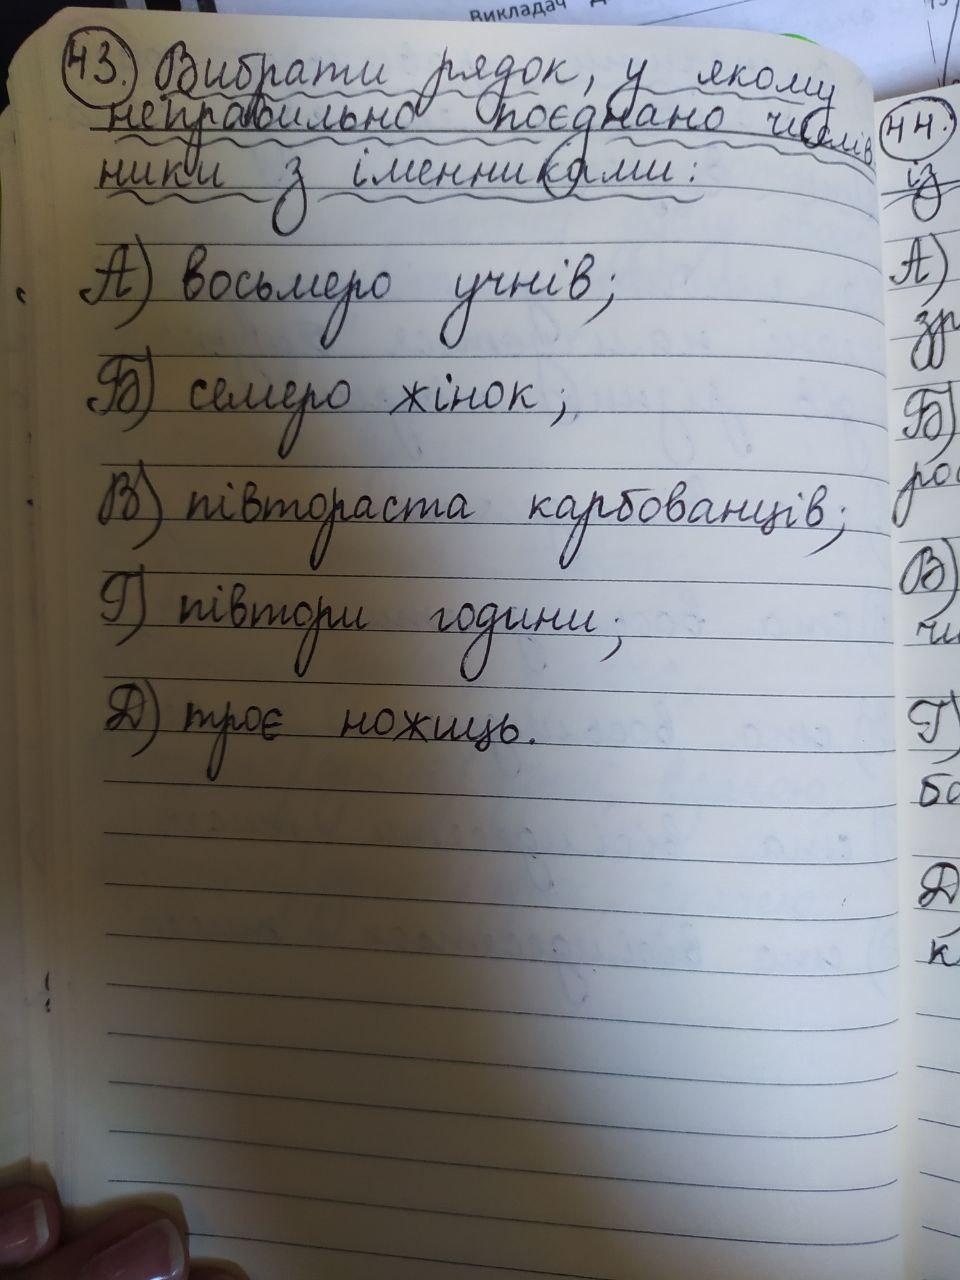 Викладач
43. Вибрати рядок, у якому
неправильно поєднано числів
ники з іменниками:
А) восьмеро учнів;
Б) семеро жінок;
В) півтораста карбованців;
Г) півтори години;
Д) троє ножиць.
44.
із
А)
зр
Б)
рос
В)
чи
Г)
бо
Д
к